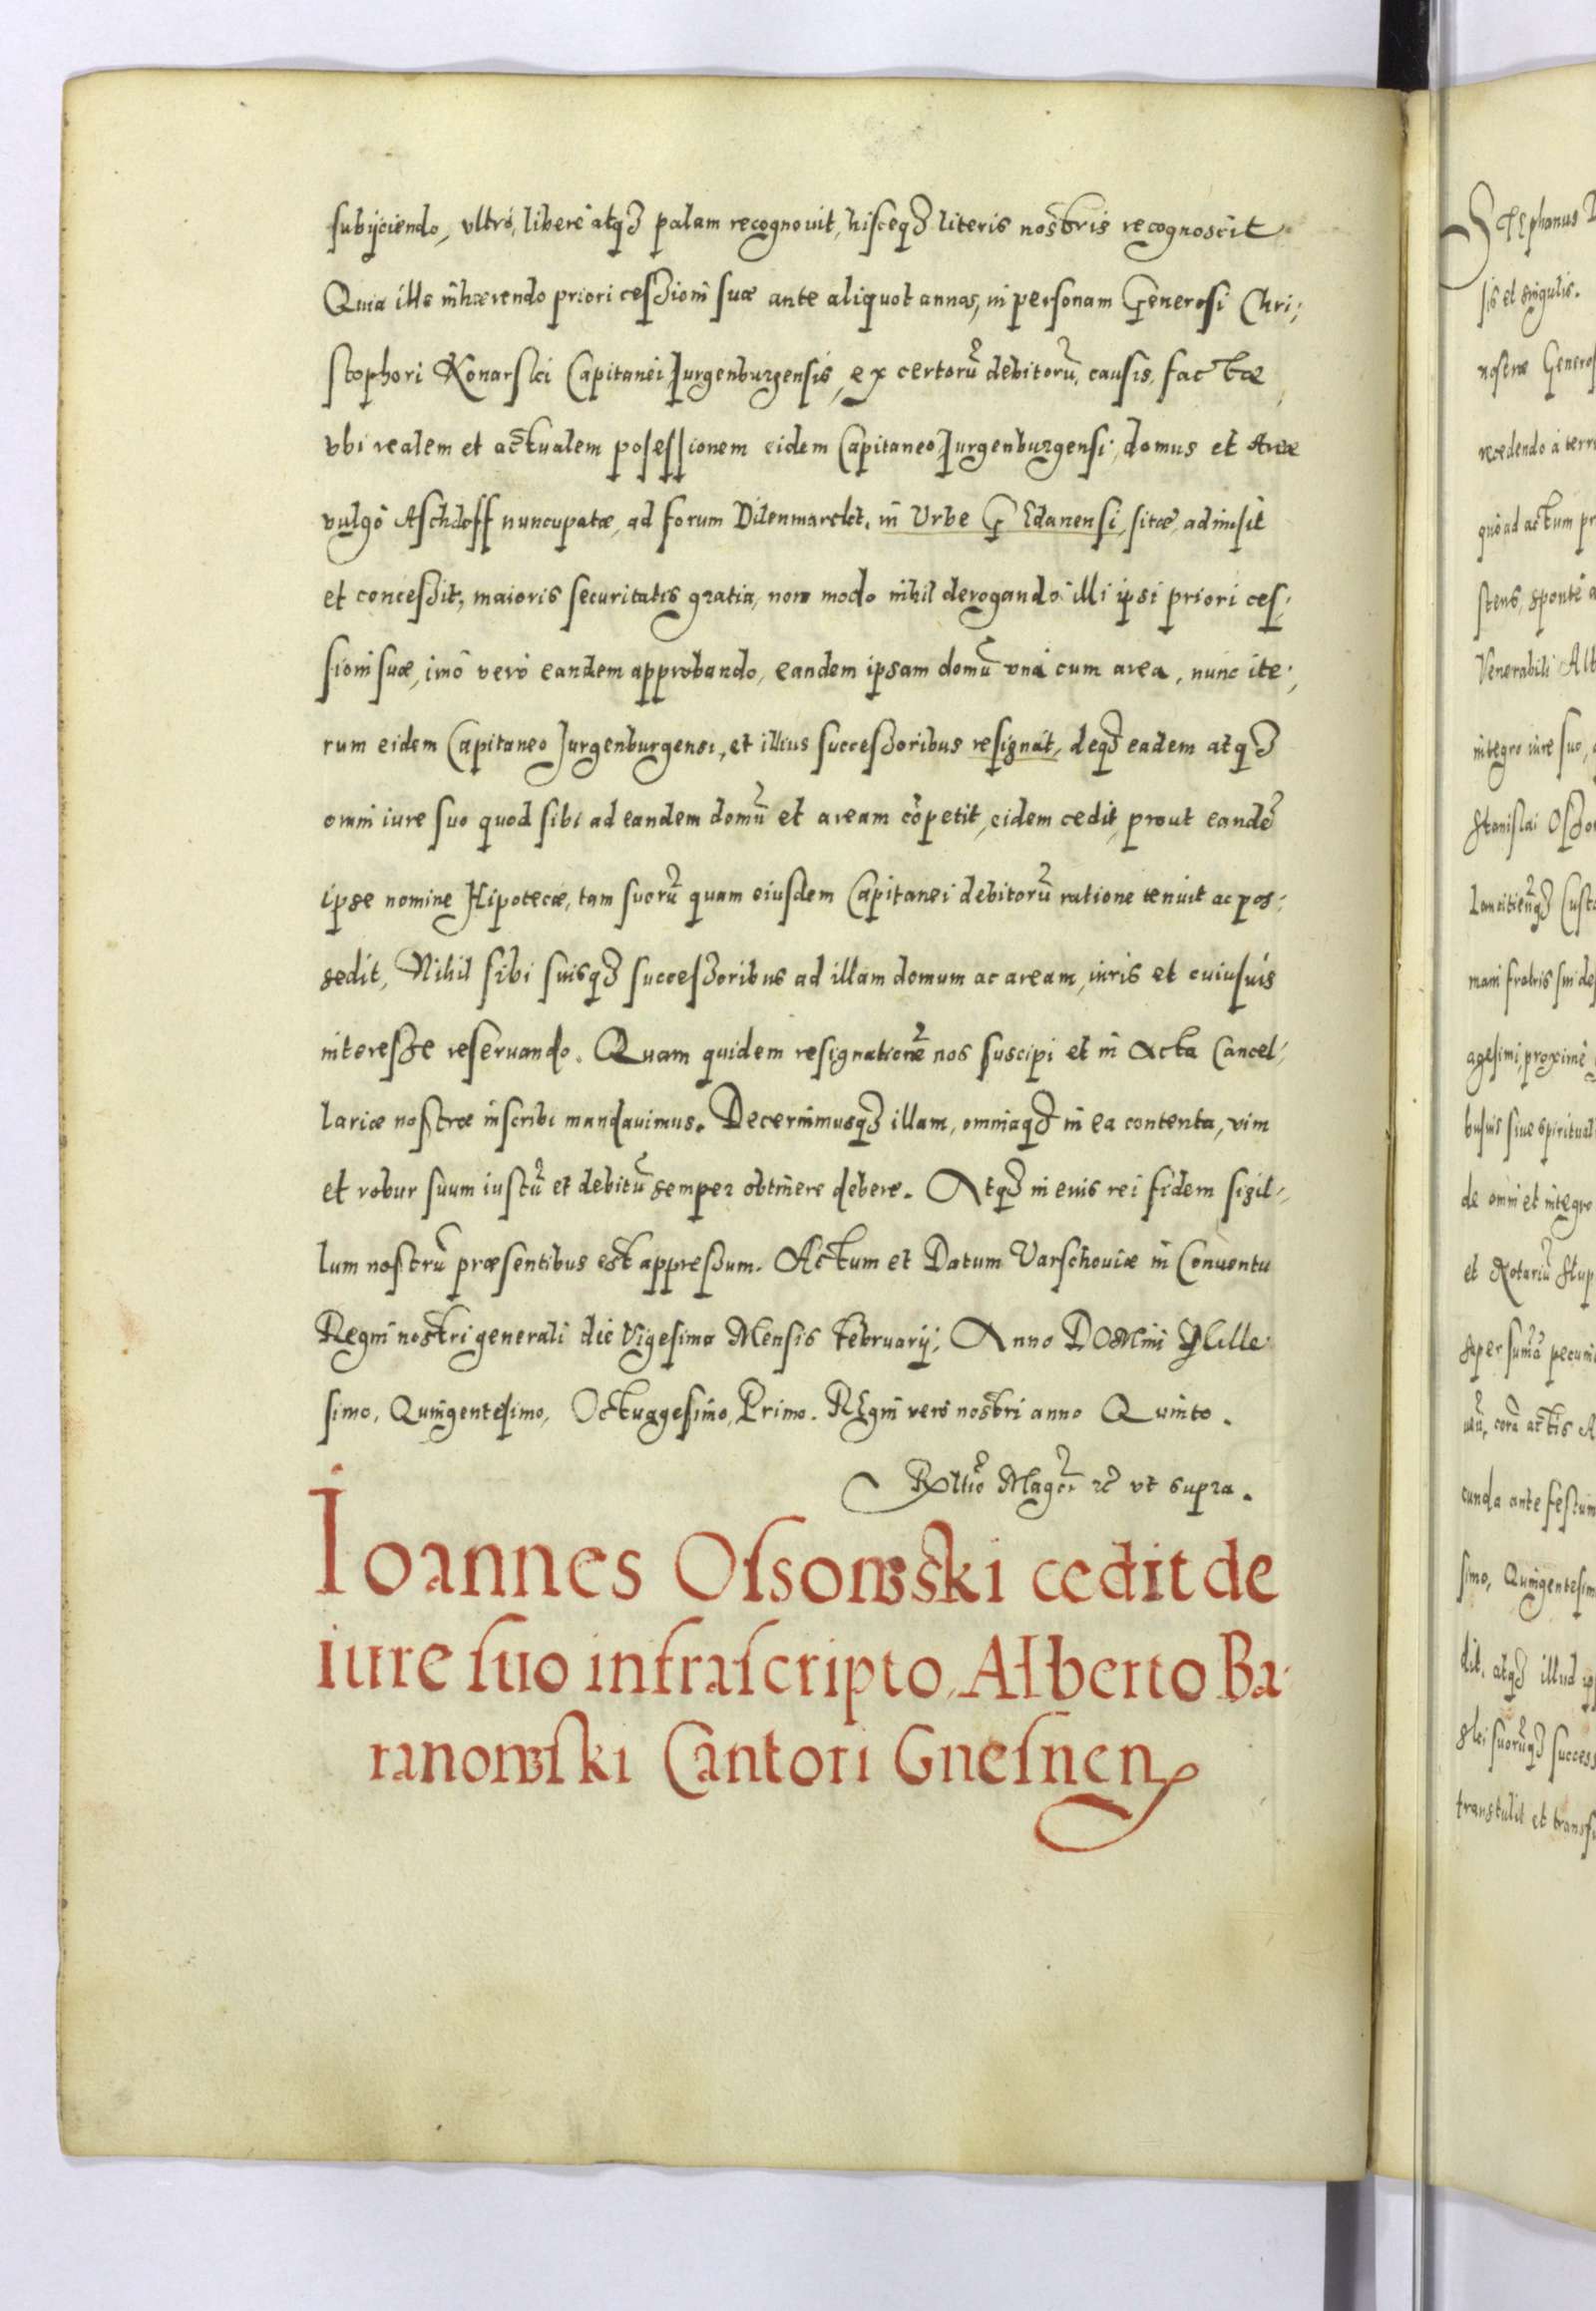 subijciendo, vltrò, liberè atq3 palam recognouit, hisceq3 literis nostris recognoscit
Quia ille inhærendo priori cessioni suæ ante aliquot annos, in personam Generosi Chri;
stophori Konarski Capitanei Jurgenburgensis, ex certorũ debitorũ, causis, factæ,
vbi realem et actualem posessionem eidem Capitaneo Jurgenburgensi, domus et Areæ
vulgò Aschdoff nuncupatæ, ad forum Dilenmarckt, in Vrbe GEdanensi, sitæ, admisit
et concessit, maioris securitatis gratia, non modo nihil derogando illi ipsi priori ces;
sioni suæ, imò verò eandem approbando, eandem ipsam domũ vnà cum area, nunc ite;
rum eidem Capitaneo Jurgenburgensi, et illius successoribus resignat, deq3 eadem atq3
omni iure suo quod sibi ad eandem domũ et aream cõpetit, eidem cedit, prout eandẽ
ipse nomine Hipotecæ, tam suorũ quam eiusdem Capitanei debitorũ ratione tenuit ac pos;
sedit, Nihil sibi suisq3 successoribus ad illam domum ac aream, iuris et cuiusuis
interesse reseruando. Quam quidem resignationẽ nos suscipi et in Acta Cancel;
lariæ nostræ inscribi mandauimus. Decernimusq3 illam, omniaq3 in ea contenta, vim
et robur suum iustũ et debitũ semper obtinere debere. Atq3 in euis rei fidem sigil;
lum nostrũ præsentibus est appressum. Actum et Datum Varschouiæ in Conuentu
Regni nostri generali die Vigesima Mensis februarij, Anno DOMini Mille
simo, Quingentesimo, Octuagesimo, Primo. REgni verò nostri anno Quinto.
Rltio Magci rc vt supra.
Ioannes Ossowski cedit de
iure suo infrascripto, Alberto Ba
ranowski Cantori Gnesnen
STEphanus
sis et singulis.
nostræ Generos
recedendo à terr
quò ad actum pr
stens, sponte a
Venerabili Alb
integro iure suo,
Stanislai Osso
Lancitienq3 Cust
mani fratris sui de
agesimi, proximè
busuis siue spiritual
de omni et integro
et Notariũ Stup
super sumã pecuni
corã actis A
cunda ante festum
simo, Quingentesim
dit, atq3 illud ip
ski suorũq3 success
transtulit et transf